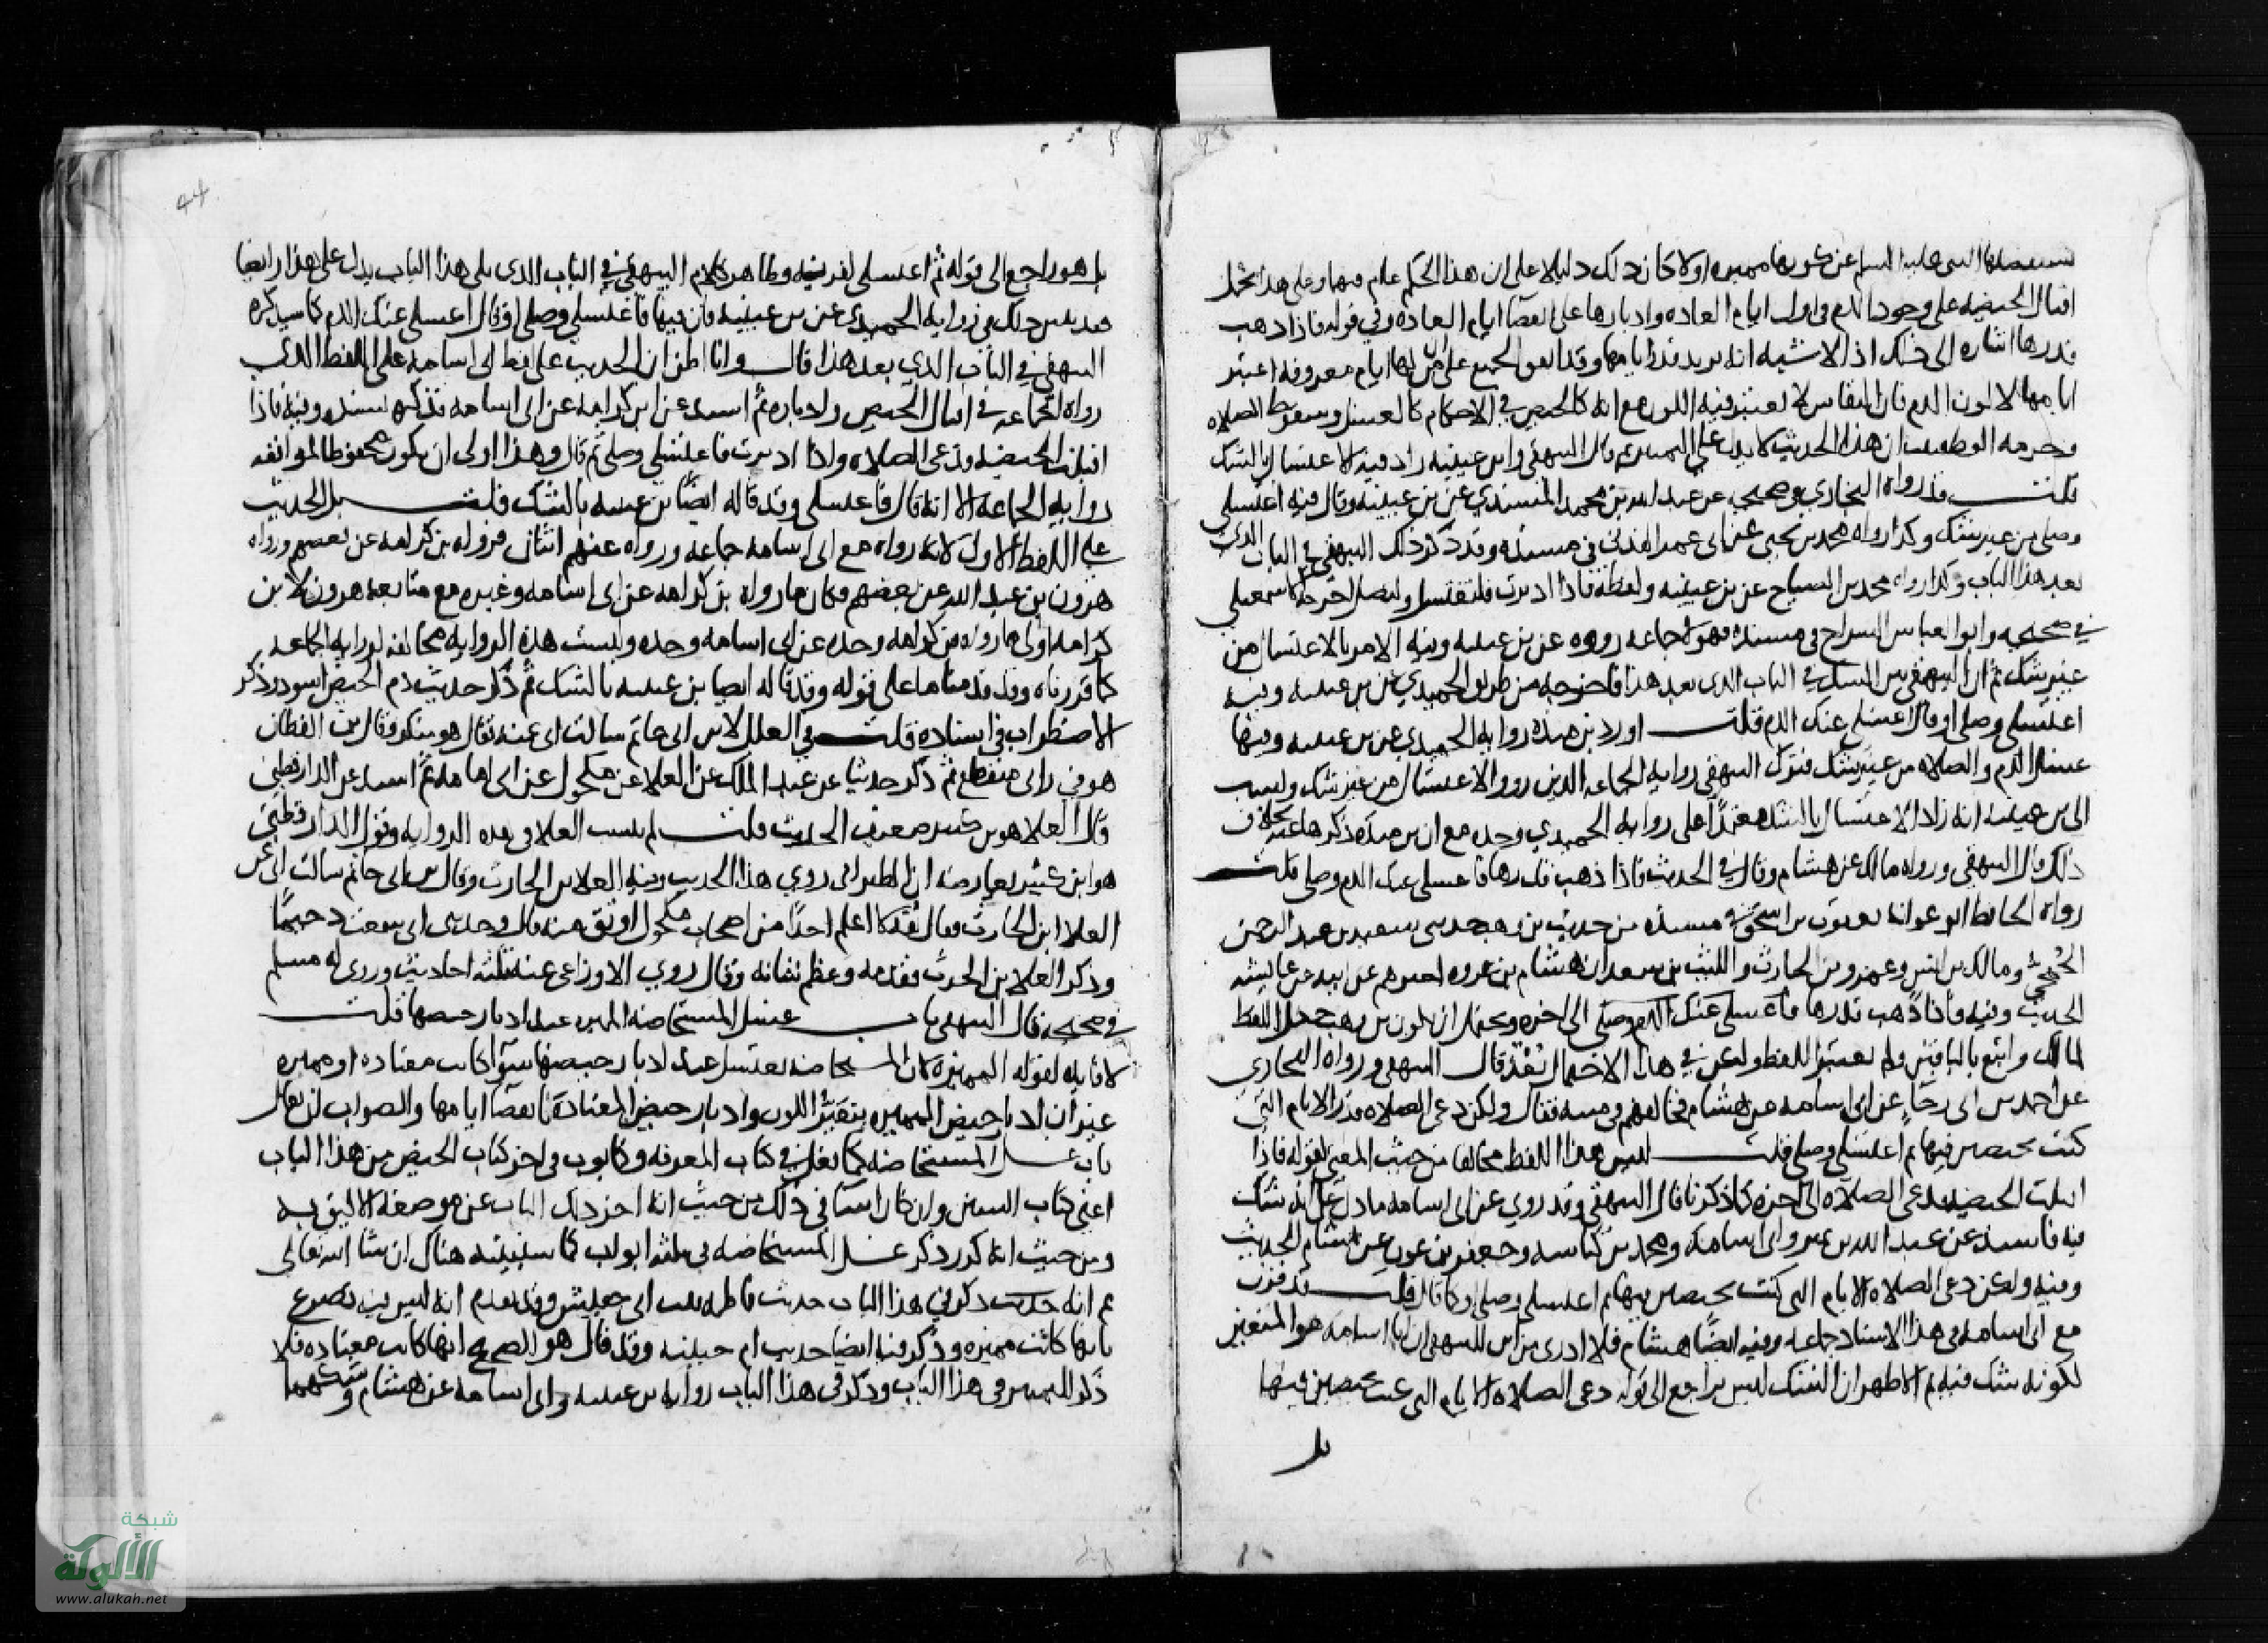 يستفصلها النبي عليه السلم عن كونها مميزه اولا كان ذلك دليلا على ان هذا الحكم عام فيهما وعلى هذا يحمل
اقبال الحيضه على وجود الدم في اول ايام العاده وادبارها على انقضا ايام العاده وفي قوله فاذا ذهب
قدرها اشاره الى ذلك اذ الاشبه انه يريد قدر ايامها وقد اتفق الجميع على ان من لها ايام معروفه اعتبر
ايامها لا لون الدم فان النفاس لا يعتبر فيه اللون مع انه كالحيض في الاحكام كالغسل وسقوط الصلاه
وحرمه الوطى ان هذا الحديث لا يدل على التمييز قال البيهقي وابن عيينه زاد فيه الاغتسال بالشك
قلت قد رواه البخاري في صحيحه عن عبد الله بن محمد المسندي عن بن عيينه وقال فيه اغتسلي
وصلي من غير شك وكذا رواه محمد بن يحيى عن ابي عمر العدني في مسنده وقد ذكر ذلك البيهقي في الباب الذي
بعد هذا الباب وكذا رواه محمد بن الصباح عن بن عيينه ولفظه فاذا ادبرت فلتغتسل ولتصل اخرجه الاسمعيلي
في صحيحه وابو العباس السراج في مسنده فهولا جماعه رووه عن بن عيينه وفيه الامر بالاغتسال من
غير شك ثم ان البيهقي بين الشك في الباب الذي بعد هذا فاخرجه من طريق الحميدي عن بن عيينه وفيه
اغتسلي وصلي او قال اغسلي عنك الدم قلت اورد بن منده رواية الحميدي عن بن عيينه وفيها
غسل الدم والصلاه من غير شك فترك البيهقي رواية الجماعه الذين رووا الاغتسال من غير شك ونسب
الى بن عيينه انه زاد الاغتسال بالشك معتمدا على رواية الحميدي وحده مع ان بن منده ذكرها عنه بخلاف
ذلك قال البيهقي ورواه مالك عن هشام وقال في الحديث فاذا ذهب قدرها فاغسلي عنك الدم وصلي قلت
رواه الحافظ ابو عوانه يعقوب بن اسحق في مسنده من حديث بن وهب حدثني سعيد بن عبد الرحمن
الجمحي ومالك بن انس وعمرو بن الحارث والليث بن سعد ان هشام بن عروه اخبرهم عن ابيه عن عايشه
الحديث وفيه فاذا ذهب قدرها فاغسلي عنك الدم وصلي الى اخره ويحتمل ان يكون بن وهب جعل اللفظ
لمالك واتبع بالباقين ولم يعتبر اللفظ ولكن في هذا الاحتمال بعد قال البيهقي ورواه البخاري
عن احمد بن ابي رجاء عن ابي اسامه عن هشام فخالفهم في متنه فقال ولكن دعي الصلاه قدر الايام التي
كنت تحيضين فيها ثم اغتسلي وصلي قلت ليس هذا اللفظ مخالفا من حيث المعنى لقوله فاذا
اقبلت الحيضه فدعي الصلاه الى اخره كما ذكرنا قال البيهقي وقد روي عن ابي اسامه ما دل على انه شك
فيه فاسند عن عبد الله بن نمير وابي اسامه ومحمد بن كناسه وجعفر بن عون عن هشام الحديث
وفيه ولكن دعي الصلاه الايام التي كنت تحيضين فيها ثم اغتسلي وصلي او كما قال قلت قد قرن
مع ابي اسامه في هذا الاسناد جماعه وفيه ايضا هشام فلا ادري من اين للبيهقي ان ابا اسامه هو المتعين
لكونه شك فيه ثم الاظهر ان الشك ليس براجع الى قوله دعي الصلاه الايام التي كنت تحيضين فيها
بل
بل هو راجع الى قوله ثم اغتسلي لقربه وظاهر كلام البيهقي في الباب الذي يلي هذا الباب يدل على هذا وايضا
فقد بين ذلك في رواية الحميدي عن بن عيينه فان فيها فاغتسلي وصلي او قال اغسلي عنك الدم كما سيذكره
البيهقي في الباب الذي بعد هذا قال وانا اظن ان الحديث على لفظ ابي اسامه على اللفظ الذي
رواه الجماعه في اقبال الحيض وادباره ثم اسند عن ابن كرامه عن ابي اسامه فذكره بسنده وفيه فاذا
اقبلت الحيضه فدعي الصلاه واذا ادبرت فاغتسلي وصلي ثم قال وهذا اولى ان يكون محفوظا لموافقه
رواية الجماعه الا انه قال فاغتسلي وقد قاله ايضا بن عيينه بالشك قلت بل الحديث
على اللفظ الاول لانه رواه مع ابي اسامه جماعه ورواه عنهم اثنان فرواه بن كرامه عن بعضهم ورواه
هرون بن عبد الله عن بعضهم فكان ما رواه بن كرامه عن ابي اسامه وغيره مع متابعة هرون لابن
كرامه اولى مما رواه بن كرامه وحده عن ابي اسامه وحده وليست هذه الرواية مخالفه لرواية الجماعه
كما قررناه وقد قدمنا ما على قوله وقد قاله ايضا بن عيينه بالشك ثم ذكر حديث دم الحيض اسود وذكر
الاضطراب في اسناده قلت في العلل لابن ابي حاتم سالت ابي عنه فقال هو منكر وقال بن القطان
هو في رايي منقطع ثم ذكر حديثا عن عبد الملك عن العلا عن مكحول عن ابي امامه ثم اسند عن الدارقطني
قال العلا هو بن كثير ضعيف الحديث قلت لم ينسب العلا في هذه الرواية وقول الدارقطني
هو ابن كثير يعارضه ان الطبراني روي هذا الحديث وفيه العلا بن الحارث وقال بن ابي حاتم سالت ابي عن
العلا ابن الحارث فقال ثقه لا اعلم احدا من اصحاب مكحول اوثق منه قال وحدثني ابي سمعت دحيما
وذكر العلا بن الحرث فقدمه وعظم شانه وقال روي الاوزاعي عنه ثلثه احاديث وروى له مسلم
في صحيحه قال البيهقي باب غسل المستحاضه المميزه عند ادبار حيضها قلت
لا فايده لقوله المميزه لان المستحاضه تغتسل عند ادبار حيضها سوآ كانت معتاده او مميزه
غير ان ادبار حيض المميزه بتغير اللون وادبار حيض المعتادة بانقضا ايامها والصواب ان يقال
باب غسل المستحاضه كما فعل في كتاب المعرفه وكما بوب في اخر كتاب الحيض من هذا الكتاب
اعني كتاب السنن وان كان اسا في ذلك من حيث انه اخر ذلك الباب عن موضعه الاليق به
ومن حيث انه كرر ذكر غسل المستحاضه في ثلثه ابواب كما سنبينه هناك ان شا الله تعالى
ثم انه ذكر في هذا الباب حديث فاطمه بنت ابي حبيش وقد تقدم انه ليس فيه تصريح
بانها كانت مميزه وذكر فيه ايضا حديث ام حبيبه وقد قال هو الصحيح انها كانت معتاده فلا
ذكر للتمييز في هذا الباب وذكر في هذا الباب رواية بن عيينه وابي اسامه عن هشام وشكهما
شبكة
الألوكة
www.alukah.net